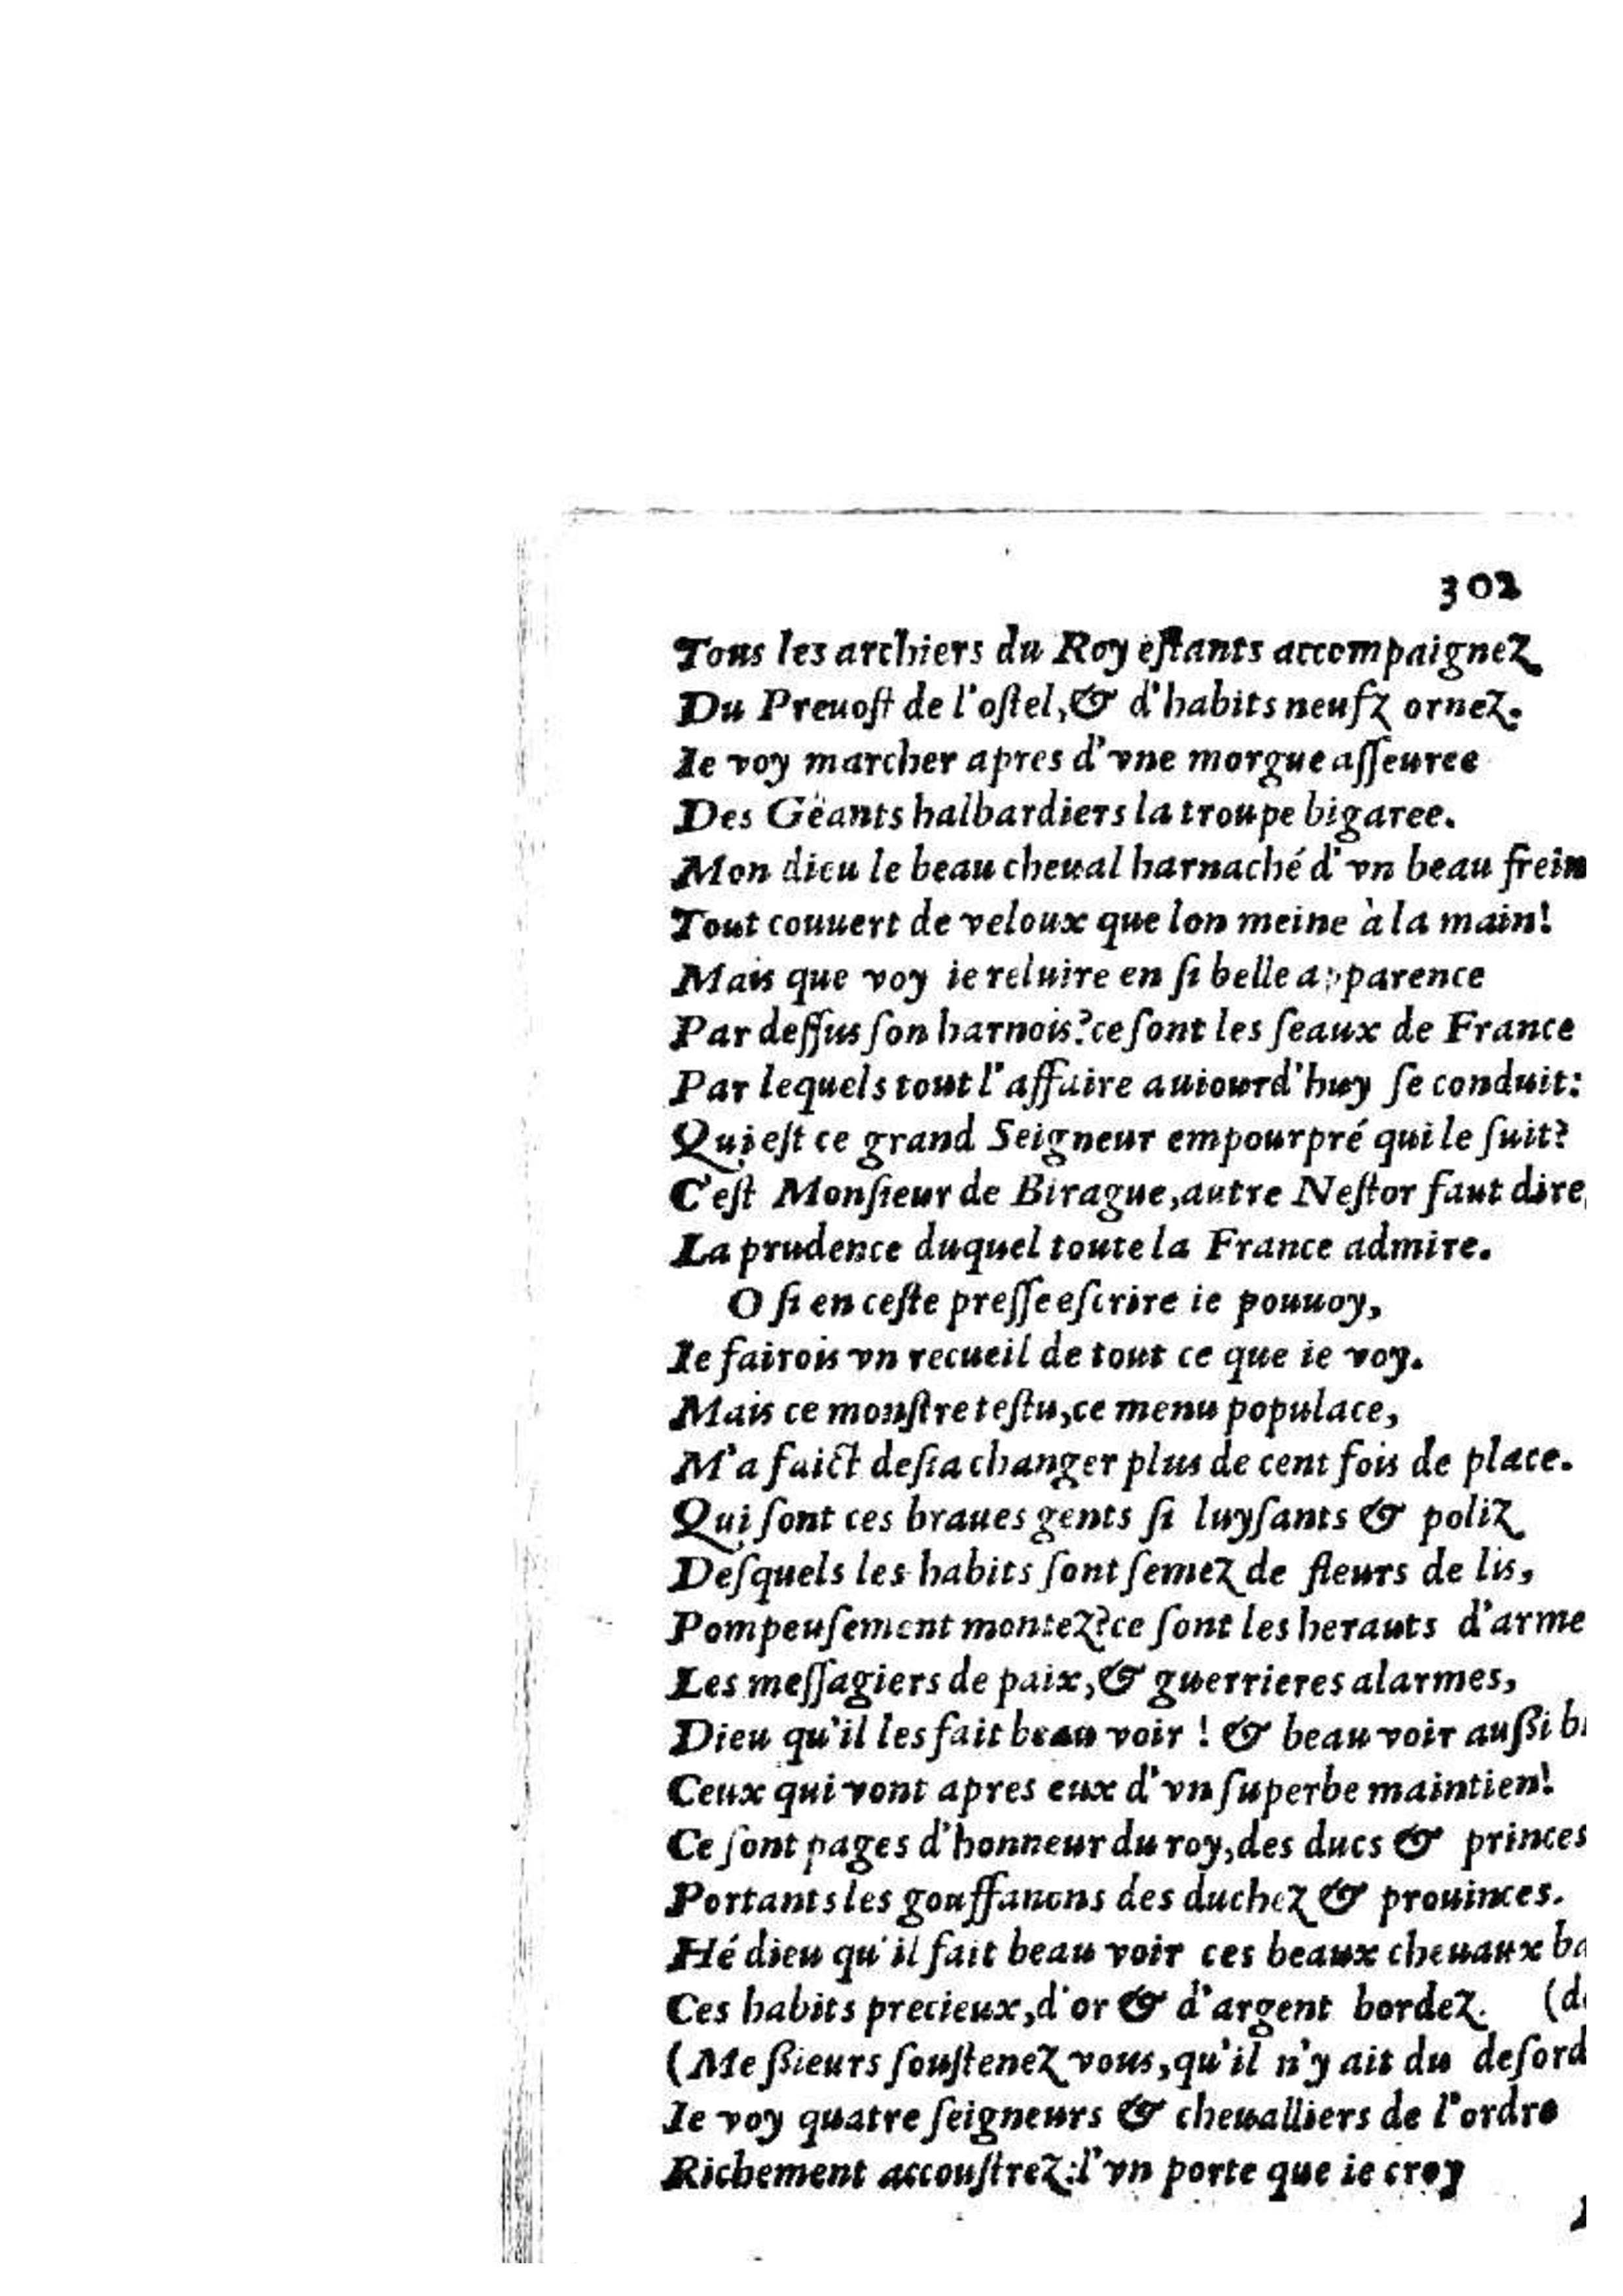 302
Tous les archiers du Roy eſtants accompaignez
Du Preuoſt de l'oſtel, & d'habits neufz ornez.
Ie voy marcher apres d'vne morgue aſſeuree
Des Geants halbardiers la troupe bigaree.
Mon dieu le beau cheual harnaché d'vn beau frein
Tout couuert de veloux que lon meine à la main!
Mais que voy ie reluire en ſi belle apparence
Par deſſus ſon harnois? ce ſont les ſeaux de France
Par lequels tout l'affaire auiourd'huy ſe conduit:
Qui eſt ce grand Seigneur empourpré qui le ſuit?
C'eſt Monſieur de Birague, autre Neſtor faut dire,
La prudence duquel toute la France admire.
O ſi en ceſte preſſe eſcrire ie pouuoy,
Ie fairois vn recueil de tout ce que ie voy.
Mais ce monſtre teſtu, ce menu populace,
M'a faict deſia changer plus de cent fois de place.
Qui ſont ces braues gents ſi luyſants & poliz
Deſquels les habits ſont ſemez de fleurs de lis,
Pompeuſement montez? ce ſont les herauts d'arme
Les meſſagiers de paix, & guerrieres alarmes,
Dieu qu'il les fait beau voir ! & beau voir auſſi
Ceux qui vont apres eux d'vn ſuperbe maintien!
Ce ſont pages d'honneur du roy, des ducs & princes
Portants les gouffanons des duchez & prouinces.
Hé dieu qu'il fait beau voir ces beaux cheuaux ba
Ces habits precieux, d'or & d'argent bordez. (de
(Meſſieurs ſouſtenez vous, qu'il n'y ait du deſord
Ie voy quatre ſeigneurs & cheualliers de l'ordre
Richement accouſtrez: l'vn porte que ie croy